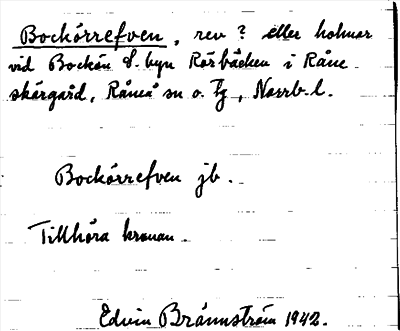 Bockörrefven, rev? eller holmar
vid Bockön S. byn Rörbäcken i Råne
skärgård, Råneå sn o. tg, Norrb. l.
Bockörrefven jb.
Tillhöra kronan.
Edvin Brännström 1942.